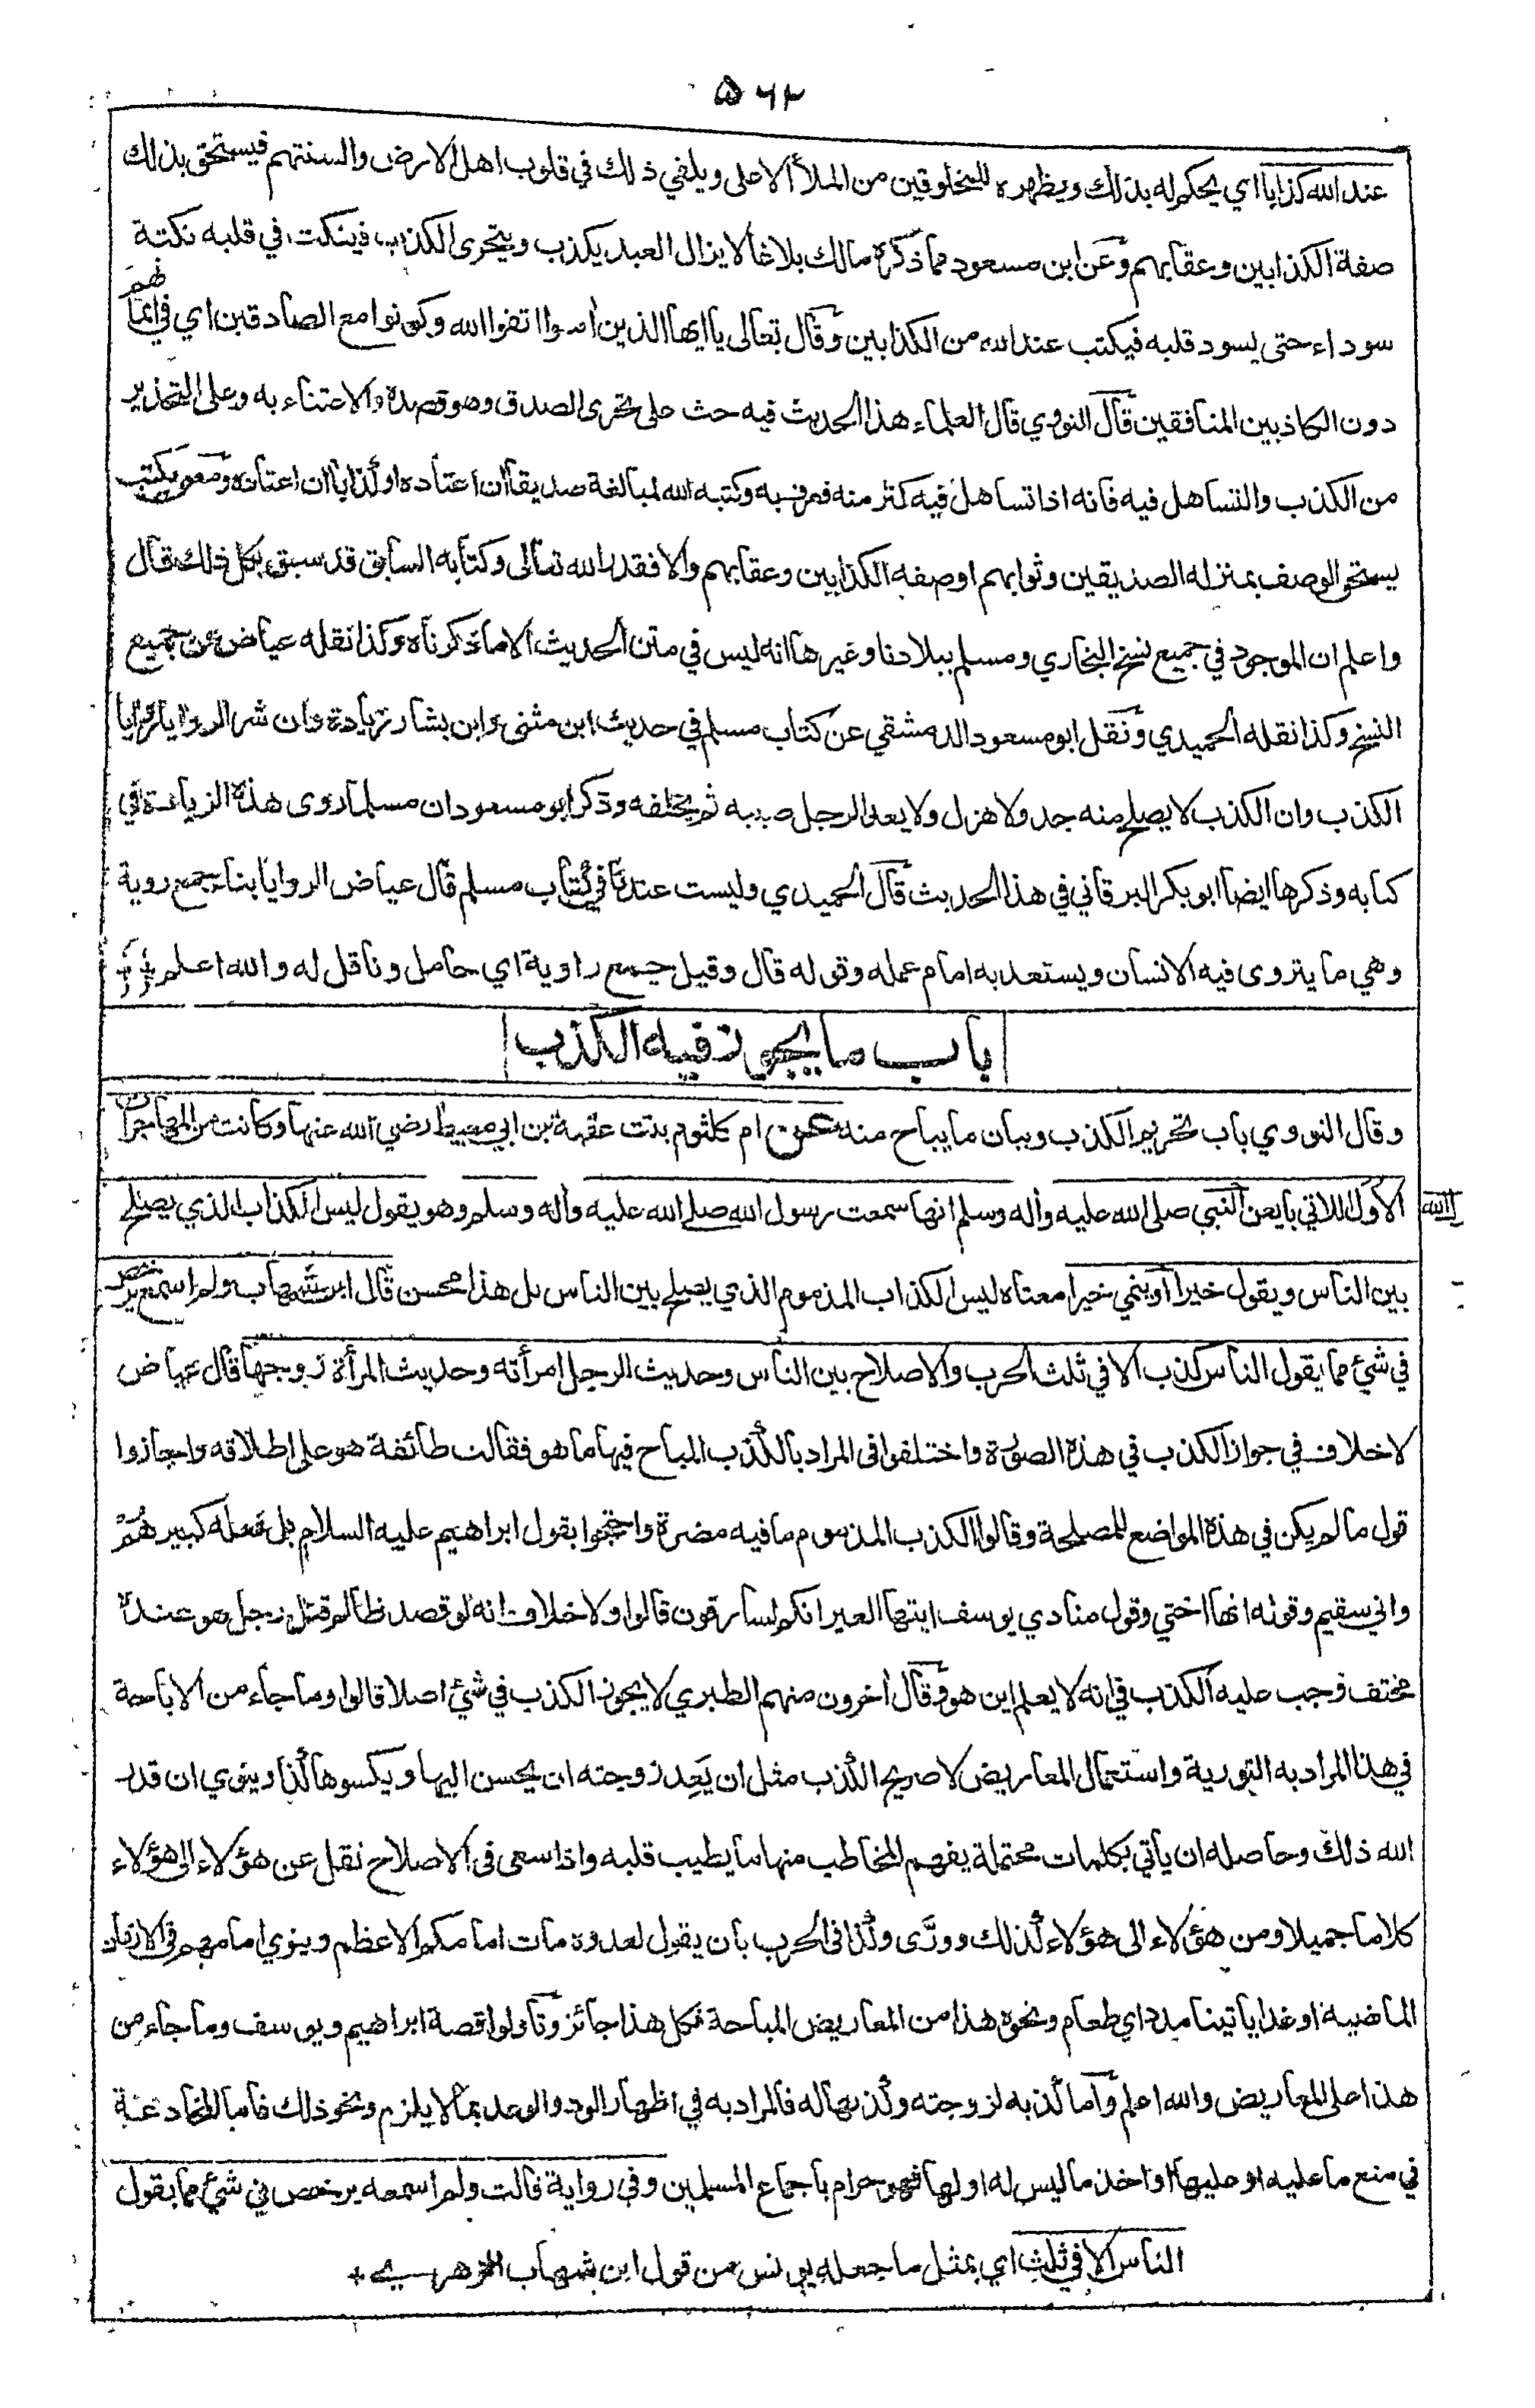 ۵۶۲
عند الله كذابا اي يحكم له بذلك ويظهره للمخلوقين من الملأ الاعلى ويلقي ذلك في قلوب اهل الارض والسنتهم فيستحق بذلك
صفة الكذابين وعقابهم وعن ابن مسعود مما ذكره مالك بلاغا لا يزال العبد يكذب ويتحرى الكذب فينكت في قلبه نكتة
سوداء حتى يسود قلبه فيكتب عند الله من الكذابين وقال تعالى يا ايها الذين امنوا اتقوا الله وكونوا مع الصادقين اي في ايمانهم
دون الكاذبين المنافقين قال النووي قال العلماء هذا الحديث فيه حث على تحرى الصدق وهو قصده والاعتناء به وعلى التحذير
من الكذب والتساهل فيه فانه اذا تساهل فيه كثر منه فعرف به وكتبه الله لمبالغة صديقا ان اعتاده او كذابا ان اعتاده ومعنى يكتب
يستحق الوصف بمنزلة الصديقين وثوابهم او صفة الكذابين وعقابهم والا فقدر الله تعالى وكتابه السابق قد سبق بكل ذلك قال
واعلم ان الموجود في جميع نسخ البخاري ومسلم ببلادنا وغيرها انه ليس في متن الحديث الا ما ذكرناه وكذا نقله عياض عن جميع
النسخ وكذا نقله الحميدي ونقل ابو مسعود الدمشقي عن كتاب مسلم في حديث ابن مثنى وابن بشار زيادة وان شر الروايا روايا
الكذب وان الكذب لا يصلح منه جد ولا هزل ولا يعد الرجل صبيه ثم يخلفه وذكر ابو مسعود ان مسلما روى هذه الزيادة في
كتابه وذكرها ايضا ابو بكر البرقاني في هذا الحديث قال الحميدي وليست عندنا في كتاب مسلم قال عياض الروايا بنا جمع روية
وهي ما يتروى فيه الانسان ويستعد به امام عمله وقوله قال وقيل جمع راوية اي حامل وناقل له والله اعلم
باب ما يجوز فيه الكذب
وقال النووي باب تحريم الكذب وبيان ما يباح منه عن ام كلثوم بنت عقبة بن ابي معيط رضي الله عنها وكانت من المهاجرات
الاول اللاتي بايعن النبي صلى الله عليه واله وسلم انها سمعت رسول الله صلى الله عليه واله وسلم وهو يقول ليس الكذاب الذي يصلح
بين الناس ويقول خيرا او ينمي خيرا معناه ليس الكذاب المذموم الذي يصلح بين الناس بل هذا محسن قال ابن شهاب ولم اسمع يرخص
في شيء مما يقول الناس كذب الا في ثلث الحرب والاصلاح بين الناس وحديث الرجل امرأته وحديث المرأة زوجها قال عياض
لا خلاف في جواز الكذب في هذه الصورة واختلفوا في المراد بالكذب المباح فيها ما هو فقالت طائفة هو على اطلاقه واجازوا
قول ما لم يكن في هذه المواضع للمصلحة وقالوا الكذب المذموم ما فيه مضرة واحتجوا بقول ابراهيم عليه السلام بل فعله كبيرهم
واني سقيم وقوله انها اختي وقول منادي يوسف ايتها العير انكم لسارقون قالوا ولا خلاف انه لو قصد ظالم قتل رجل هو عنده
مختف وجب عليه الكذب في انه لا يعلم اين هو وقال اخرون منهم الطبري لا يجوز الكذب في شيء اصلا قالوا وما جاء من الاباحة
في هذا المراد به التورية واستعمال المعاريض لا صريح الكذب مثل ان يعد زوجته ان يحسن اليها ويكسوها كذا وينوي ان قدر
الله ذلك وحاصله ان يأتي بكلمات محتملة يفهم المخاطب منها ما يطيب قلبه واذا سعى في الاصلاح نقل عن هؤلاء الى هؤلاء
كلاما جميلا ومن هؤلاء الى هؤلاء كذلك وورّى وكذا في الحرب بان يقول لعدوه مات امامكم الاعظم وينوي امامهم في الازمان
الماضية او غدا ياتينا مدد اي طعام ونحوه هذا من المعاريض المباحة فكل هذا جائز وتأولوا قصة ابراهيم ويوسف وما جاء من
هذا على المعاريض والله اعلم واما كذبه لزوجته وكذبها له فالمراد به في اظهار الود والوعد بما لا يلزم ونحو ذلك فاما المخادعة
في منع ما عليه او عليها او اخذ ما ليس له او لها فهو حرام باجماع المسلمين وفي رواية قالت ولم اسمعه يرخص في شيء مما يقول
الناس الا في ثلث اي بمثل ما جعله يونس من قول ابن شهاب الزهري